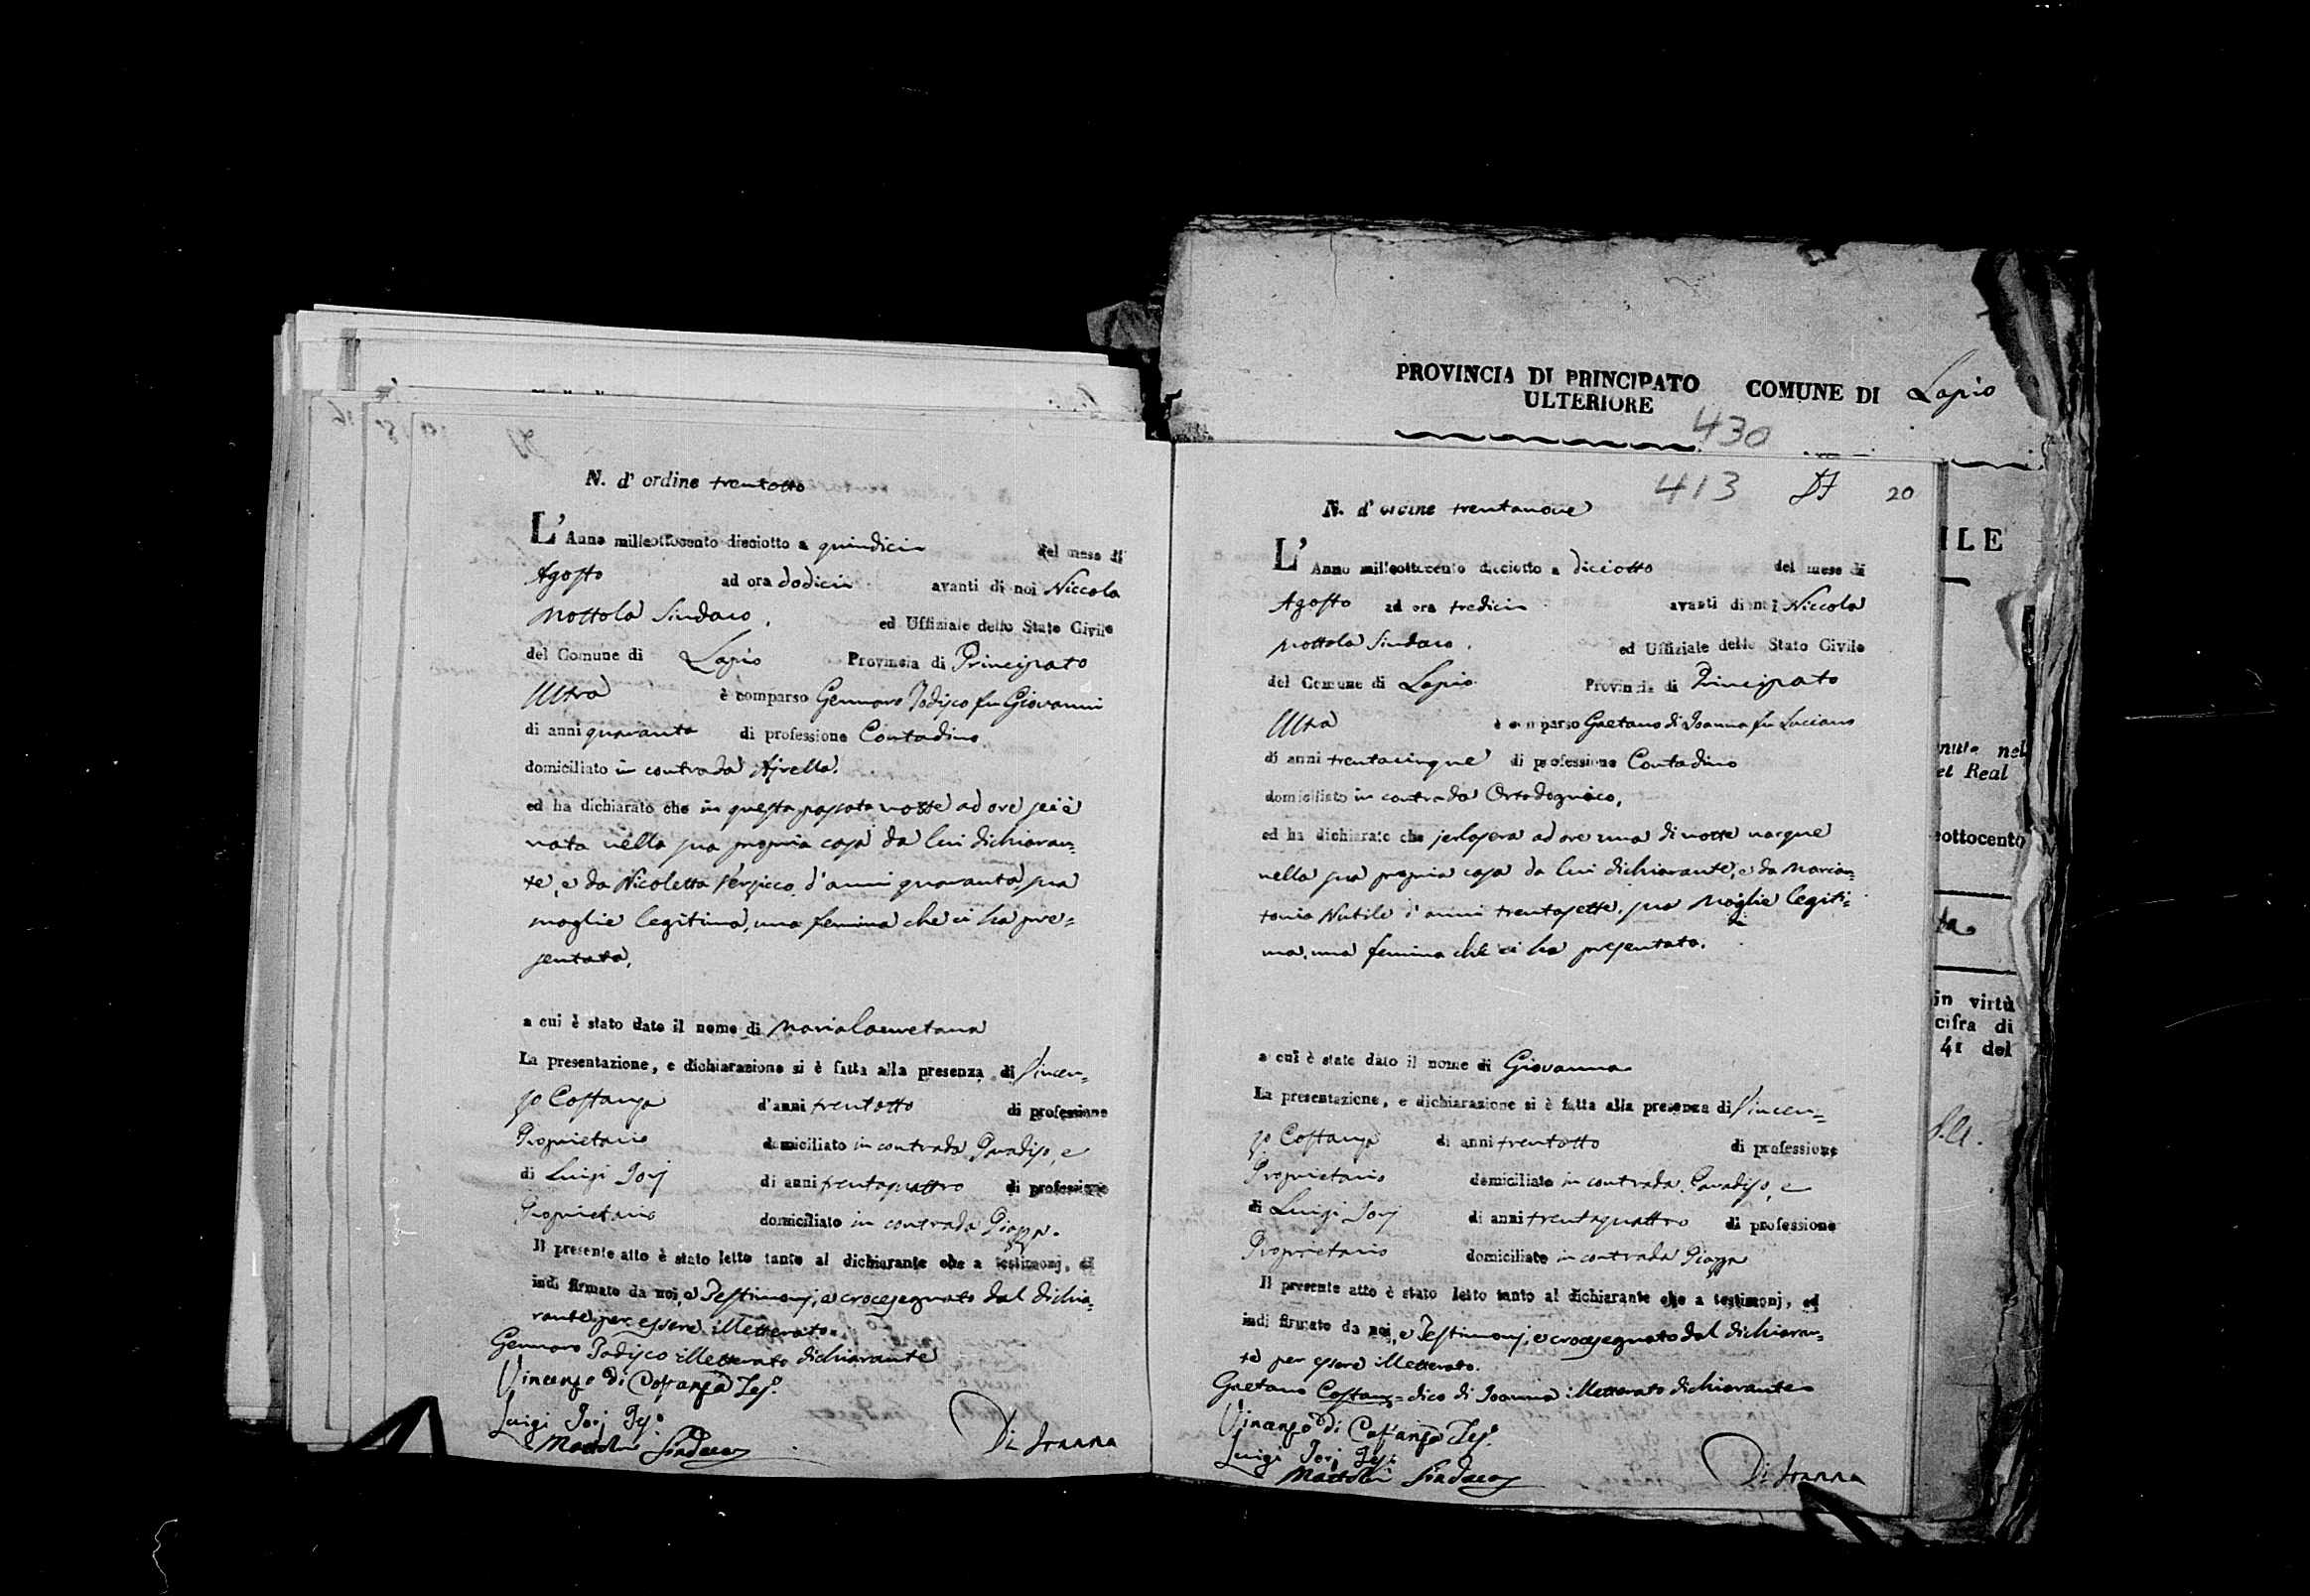 N. d' ordine trentotto
L' Anno milleottocento dieciotto a quindici del mese di
Agosto ad ora dodici avanti di noi Niccola
Mottola Sindaco, ed Uffiziale dello Stato Civile
del Comune di Lapio Provincia di Principato
Ultra è comparso Gennaro Jodisco fu Giovanni
di anni quaranta di professione Contadino
domiciliato in contrada
ed ha dichiarato che in questa passata notte ad ore sei è
nata nella sua propria casa da lui dichiaran=
te, e da Nicoletta d'anni quaranta, sua
moglie legitima, una femina che ci ha pre=
sentata,
a cui è stato dato il nome di Marialauretana
La presentazione, e dichiarazione si è fatta alla presenza di Vincen=
zo Costanza d'anni trentotto di professione
Proprietario domiciliato in contrada Paradiso, e
di Luigi Jorj di anni trentaquattro di professione
Proprietario domiciliato in contrada Piazza.
Il presente atto è stato letto tanto al dichiarante che a testimonj, ed
indi firmato da noi, e Testimonj, e crocesegnato dal dichia=
rante per essere illetterato.
Gennaro Jodisco illetterato dichiarante
Vincenzo di Costanza Tes.º
Luigi Jorj Tes.º
Mottola Sindaco Di Joanna
PROVINCIA DI PRINCIPATO COMUNE DI Lapio
ULTERIORE
430
413 20
N. d' ordine trentanove
L' Anno milleottocento dieciotto a dieciotto del mese di
Agosto ad ora tredici avanti di noi Niccola
Mottola Sindaco, ed Uffiziale dello Stato Civile
del Comune di Lapio Provincia di Principato
Ultra è comparso Gaetano di Joanna fu Luciano
di anni trentacinque di professione Contadino
domiciliato in contrada
ed ha dichiarato che jerlasera ad ore una di notte nacque
nella sua propria casa da lui dichiarante, e da Marian=
tonia Nutile d'anni trentasette, sua Moglie legiti=
ma, una femina che ci ha presentata.
a cui è stato dato il nome di Giovanna
La presentazione, e dichiarazione si è fatta alla presenza di Vincen=
zo Costanza di anni trentotto di professione
Proprietario domiciliato in contrada Paradiso, e
di Luigi Jorj di anni trentaquattro di professione
Proprietario domiciliato in contrada Piazza
Il presente atto è stato letto tanto al dichiarante che a testimonj, ed
indi firmato da noi, e Testimonj, e crocesegnato dal dichiaran=
te per essere illetterato.
Gaetano Costanz= dico di Joanna illetterato dichiarante
Vincenzo di Costanza Tes.º
Luigi Jorj Tes.º
Mottola Sindaco Di Joanna
ILE
nel
et Real
eottocento
in virtù
cifra di
41 del